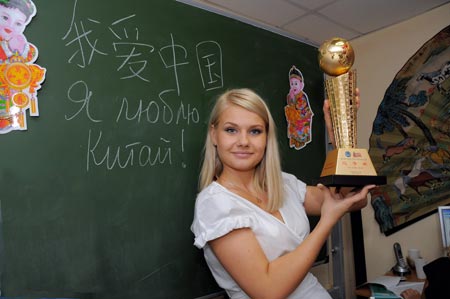 我爱中国
Я люблю
Китай!